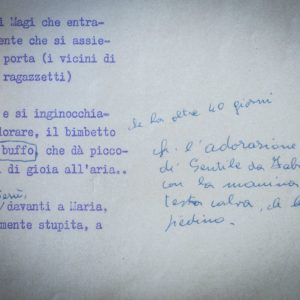 i Magi che entra-
ente che si assie-
porta (i vicini di
ragazzetti)
e si inginocchia-
lorare, il bimbetto
buffo, che dà picco-
i di gioia all'aria..
davanti a Maria,
mente stupita, a
ha oltre 40 giorni
l'adorazione
di Gentile da Fab
con la manina
testa calva, di
piedino.